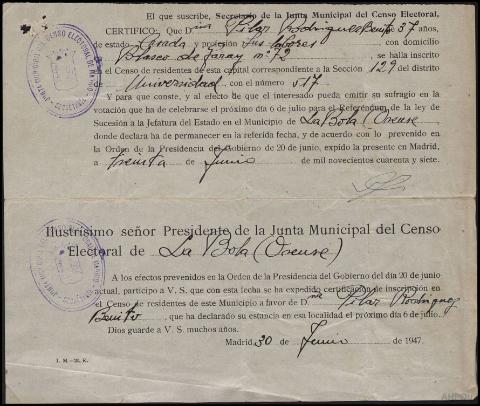 El que suscribe, Secretario de la Junta Municipal del Censo Electoral,
CERTIFICO: Que Dña Pilar Rodriguez Benito 37 años,
de estado Casada y profesión Sus labores, con domicilio
Blasco de Garay nº 72, se halla inscrito
en el Censo de residentes de esta capital correspondiente a la Sección 129 del distrito
de Universidad, con el número 517
Y para que conste, y al efecto de que el interesado pueda emitir su sufragio en la
votación que ha de celebrarse el próximo día 6 de julio para el Referéndum de la ley de
Sucesión a la Jefatura del Estado en el Municipio de La Bola (Orense)
donde declara ha de permanecer en la referida fecha, y de acuerdo con lo prevenido en
la Orden de la Presidencia del Gobierno de 20 de junio, expido la presente en Madrid,
a treinta de Junio de mil novecientos cuarenta y siete.
Ilustrísimo señor Presidente de la Junta Municipal del Censo
Electoral de La Bola (Orense)
A los efectos prevenidos en la Orden de la Presidencia del Gobierno del día 20 de junio
actual, participo a V. S. que con esta fecha se ha expedido certificación de inscripción en
el Censo de residentes de este Municipio a favor de Dña Pilar Rodriguez
Benito, que ha declarado su estancia en esa localidad el próximo día 6 de julio.
Dios guarde a V. S. muchos años.
Madrid, 30 de Junio de 1947.
I. M.-M. E.